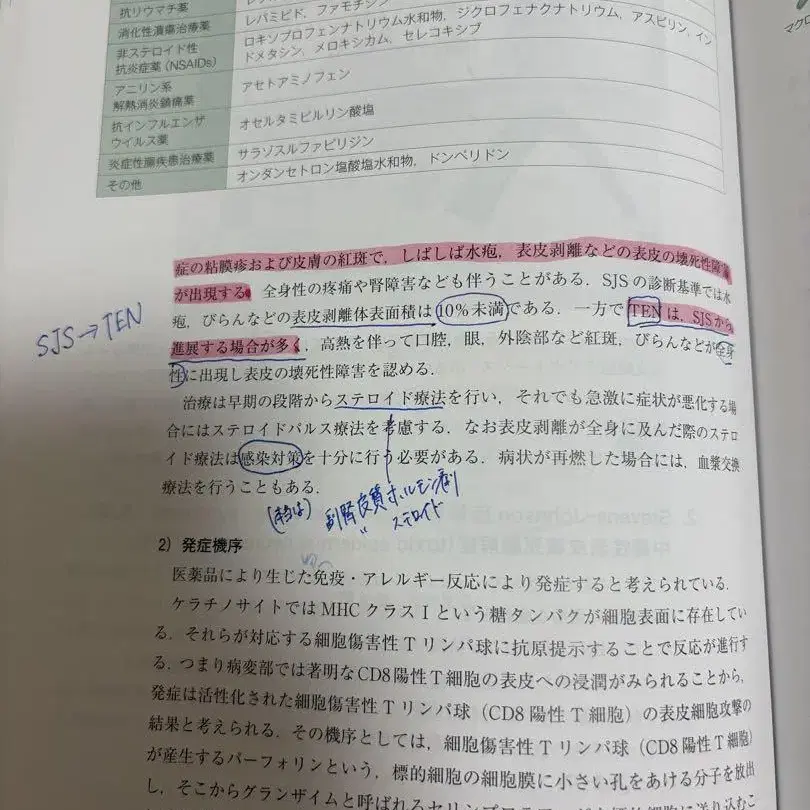 抗リウマチ薬
消化性潰瘍治療薬 レバミピド，ファモチジン
非ステロイド性 ロキソプロフェンナトリウム水和物，ジクロフェナクナトリウム，アスピリン，イン
抗炎症薬（NSAIDs） ドメタシン，メロキシカム，セレコキシブ
アニリン系 アセトアミノフェン
解熱消炎鎮痛薬
抗インフルエンザ オセルタミビルリン酸塩
ウイルス薬
炎症性腸疾患治療薬 サラゾスルファピリジン
その他 オンダンセトロン塩酸塩水和物，ドンペリドン
症の粘膜疹および皮膚の紅斑で，しばしば水疱，表皮剥離などの表皮の壊死性障
が出現する．全身性の疼痛や腎障害なども伴うことがある．SJSの診断基準では水
疱，びらんなどの表皮剥離体表面積は10％未満である．一方でTENは，SJSから
進展する場合が多く，高熱を伴って口腔，眼，外陰部など紅斑，びらんなどが全身
性に出現し表皮の壊死性障害を認める．
SJS→TEN
治療は早期の段階からステロイド療法を行い，それでも急激に症状が悪化する場
合にはステロイドパルス療法を考慮する．なお表皮剥離が全身に及んだ際のステロ
イド療法は感染対策を十分に行う必要がある．病状が再燃した場合には，血漿交換
療法を行うこともある．
副腎皮質ホルモン剤
ステロイド
2）発症機序
医薬品により生じた免疫・アレルギー反応により発症すると考えられている．
ケラチノサイトではMHCクラスⅠという糖タンパクが細胞表面に存在してい
る．それらが対応する細胞傷害性Tリンパ球に抗原提示することで反応が進行す
る．つまり病変部では著明なCD8陽性T細胞の表皮への浸潤がみられることから，
発症は活性化された細胞傷害性Tリンパ球（CD8陽性T細胞）の表皮細胞攻撃の
結果と考えられる．その機序としては，細胞傷害性Tリンパ球（CD8陽性T細胞）
が産生するパーフォリンという，標的細胞の細胞膜に小さい孔をあける分子を放出
し，そこからグランザイムと呼ばれるセリンプロ